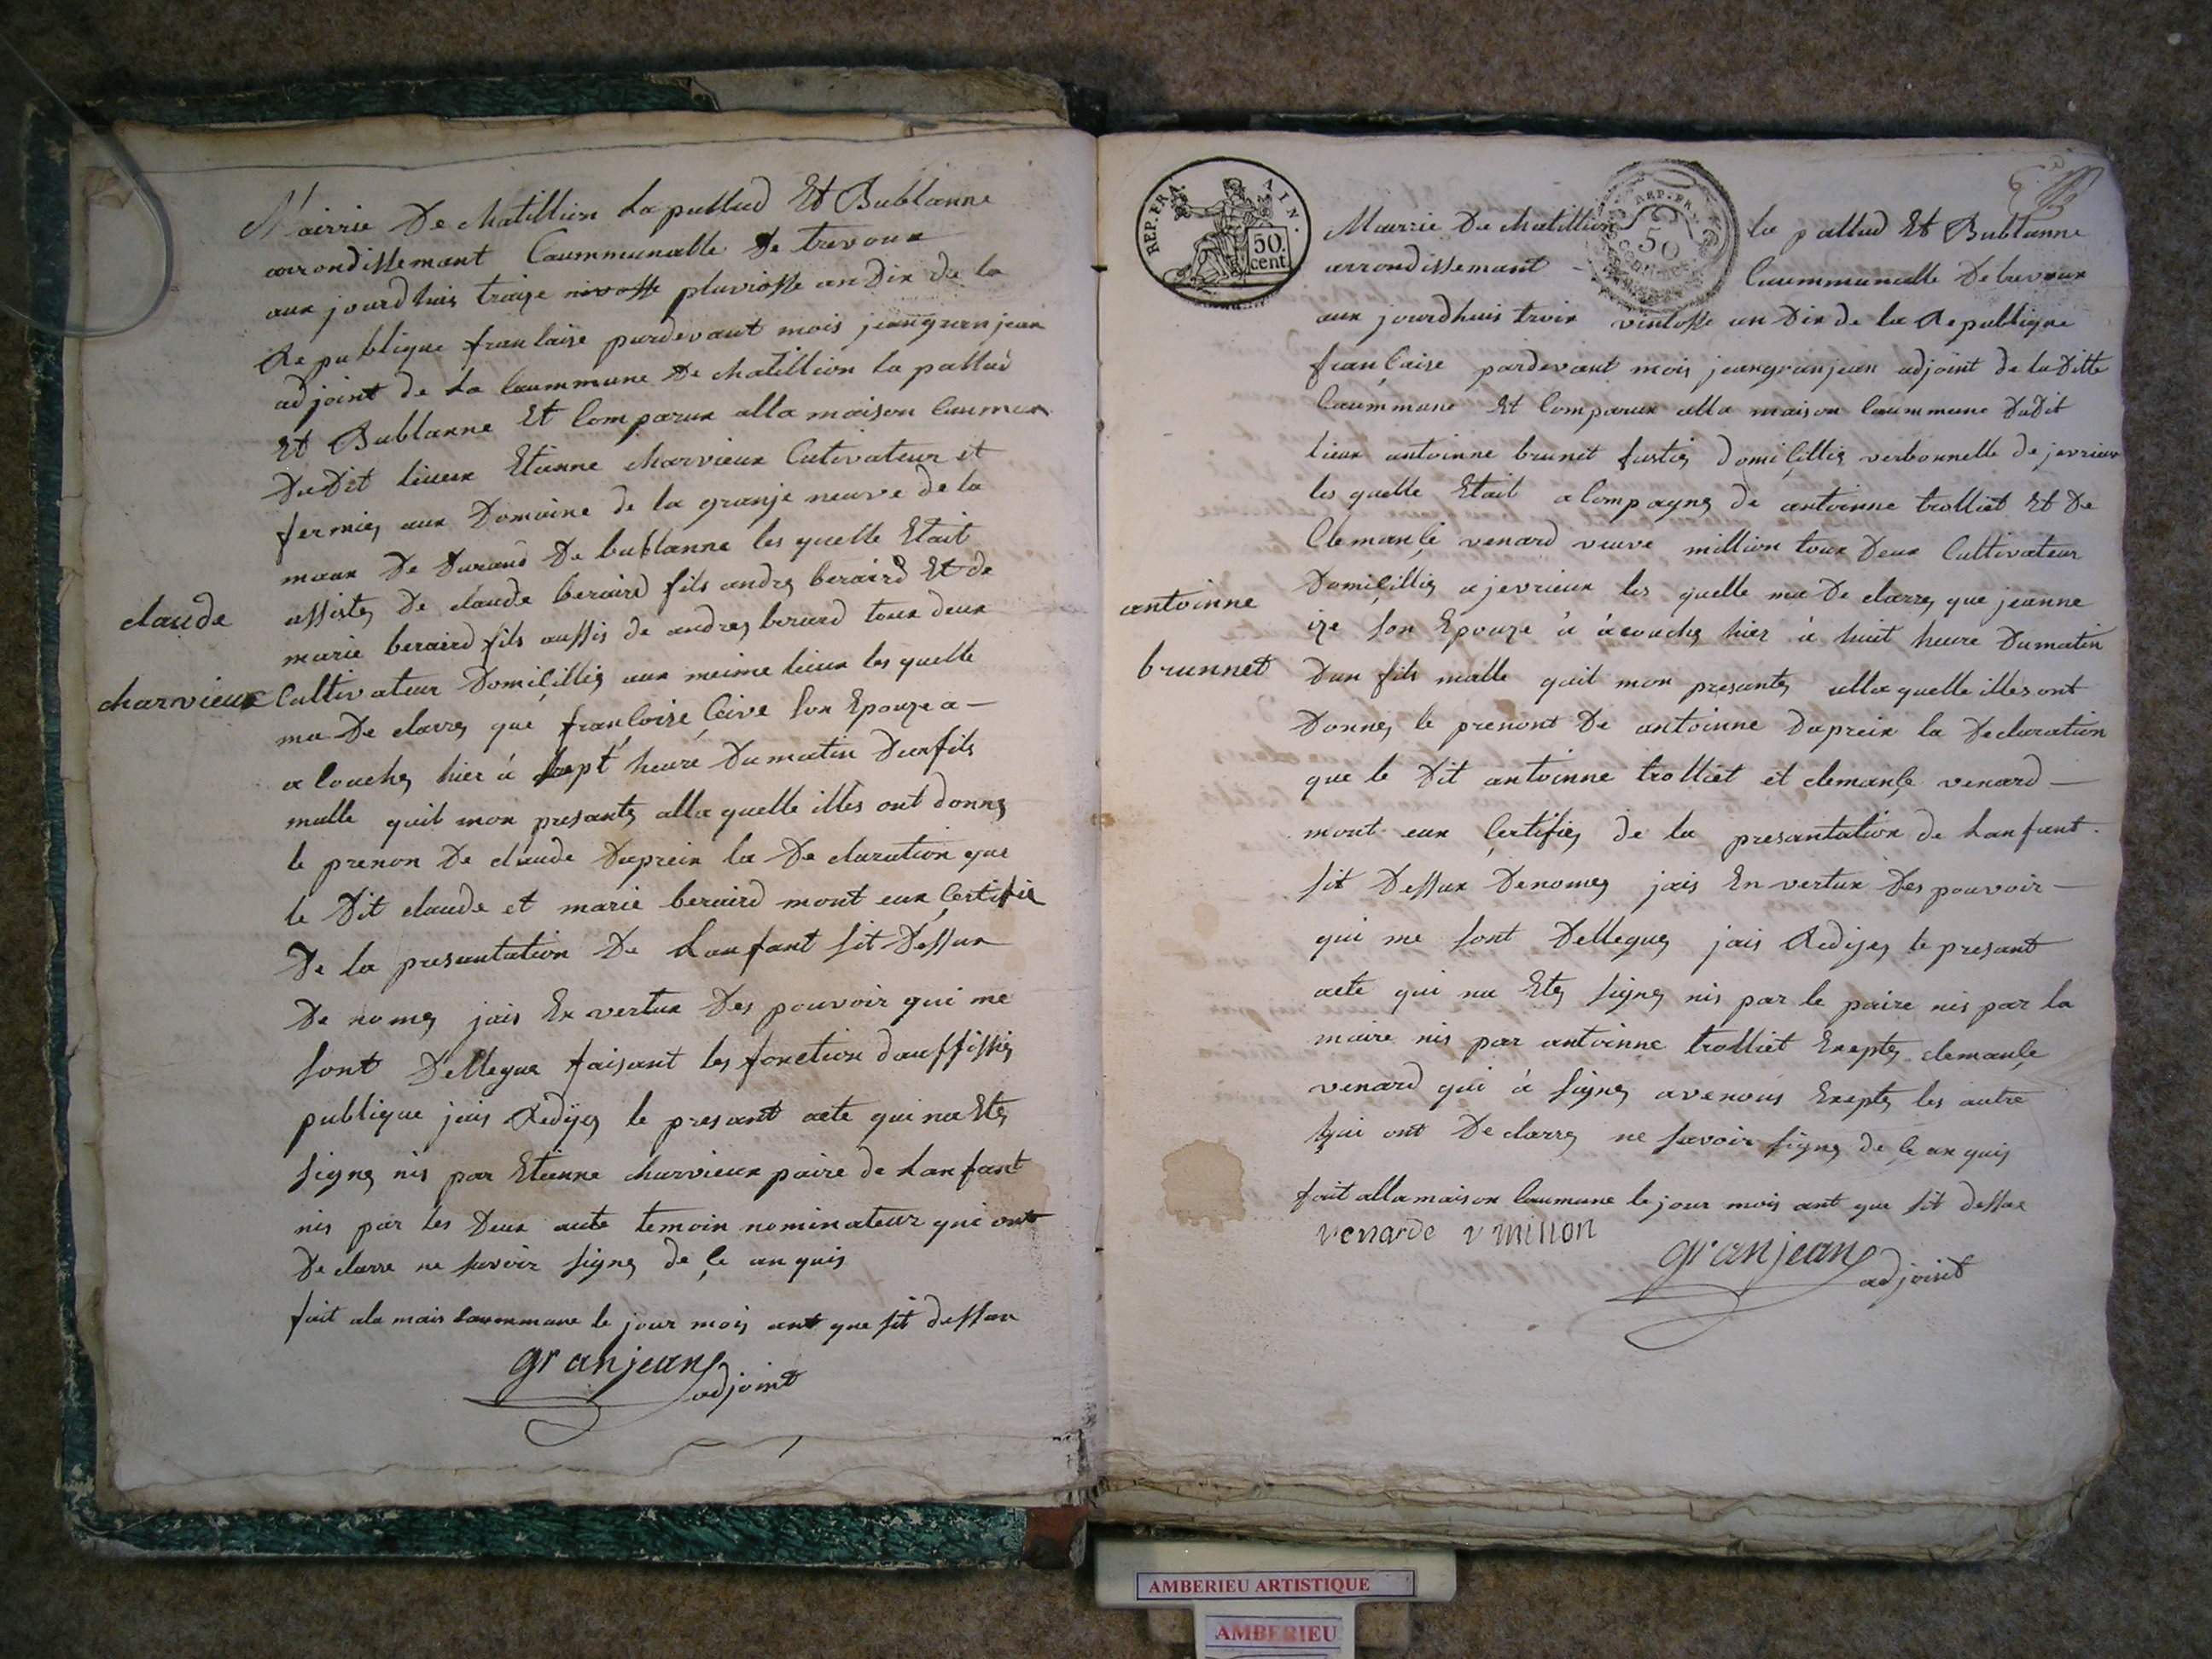 Mairrie De chatillion La pallud Et Bublanne
arrondissemant Caummunalle De trevoux
aux jourdhuis traize nivosse pluviosse an Dix de la
Republique francaise pardevant mois jeangranjean
adjoint de La Caummune De chatillion la pallud
Et Bublanne Et Comparux alla maison Caumun
DuDit lieux Etienne charvieux Cutivateur et
fermiez aux Domaine de la granje neuve de la
maux De Durand De bublanne les quelle Etait
assistez De claude beraird fils andrez beraird Et de
marie beraird fils aussis de andrez berard toux deux
Cultivateur Domiçilliez aux meime lieux les quelle
ma De clarrez que françoise Çeive Son Epouze a
a Couchez hier à sept heure Dumatin Dunfils
malle quil mon presantez alla quelle illes ont donnez
le prenon De claude Dapreix la De claration que
le Dit claude et marie beraird mont eux Çertifie
De la presantation De Lanfant sit Dessux
De nomez jais En vertux Des pouvoir qui me
sont Dellegue faisant les fonction dauffissiez
publique jais Redijez le presant acte qui na Etez
signez nis par Etienne charvieux paire de Lanfant
nis par les Deux aute temoin nominateur qui ont
De clarre ne savoir signez de çe anquis
fait ala mais Caummune le jour mois ant que sit dessux
granjean
adjoint
claude
charvieux
REP. FRA.
AIN.
50.
cent
REP. FRA.
50
Mairrie De chatillion la pallud Et Bublanne
arrondissemant Caummunalle De trevoux
aux jourdhuis troix vintosse an Dix de la Republique
françaire pardevant mois jeangranjean adjoint de la Ditte
Caummune Et Comparux alla maison Caummune DuDit
lieux antoinne brunet fustiez domiçilliez verbonnelle de jevrieux
les quelle Etait a Compagnez de antoinne trolliet Et De
Clemançe venard veuve million toux Deux Cultivateur
Domiçilliez a jevrieux les quelle ma De clarrez que jeanne
ize son Epouze à àcouchez hier à huit heure Dumatin
Dun fils malle quil mon presantez alla quelle illes ont
Donnez le prenont De antoinne Dapreix la Declaration
que le Dit antoinne trolliet et clemançe venard
mont eux Çertifiez de la presantation de Lanfant
sit Dessux Denomez jais En vertux Des pouvoir
qui me sont Delleguez jais Redijez le presant
acte qui na Etez signez nis par le paire nis par la
maire nis par antoinne trolliet Exeptez clemançe
venard qui à signez avenous Exeptez les autre
qui ont De clarrez ne savoir signez de çe anquis
fait allamaison Caumune le jour mois ant que sit dessux
venarde v million
granjean
adjoint
antoinne
brunnet
AMBERIEU ARTISTIQUE
AMBERIEU